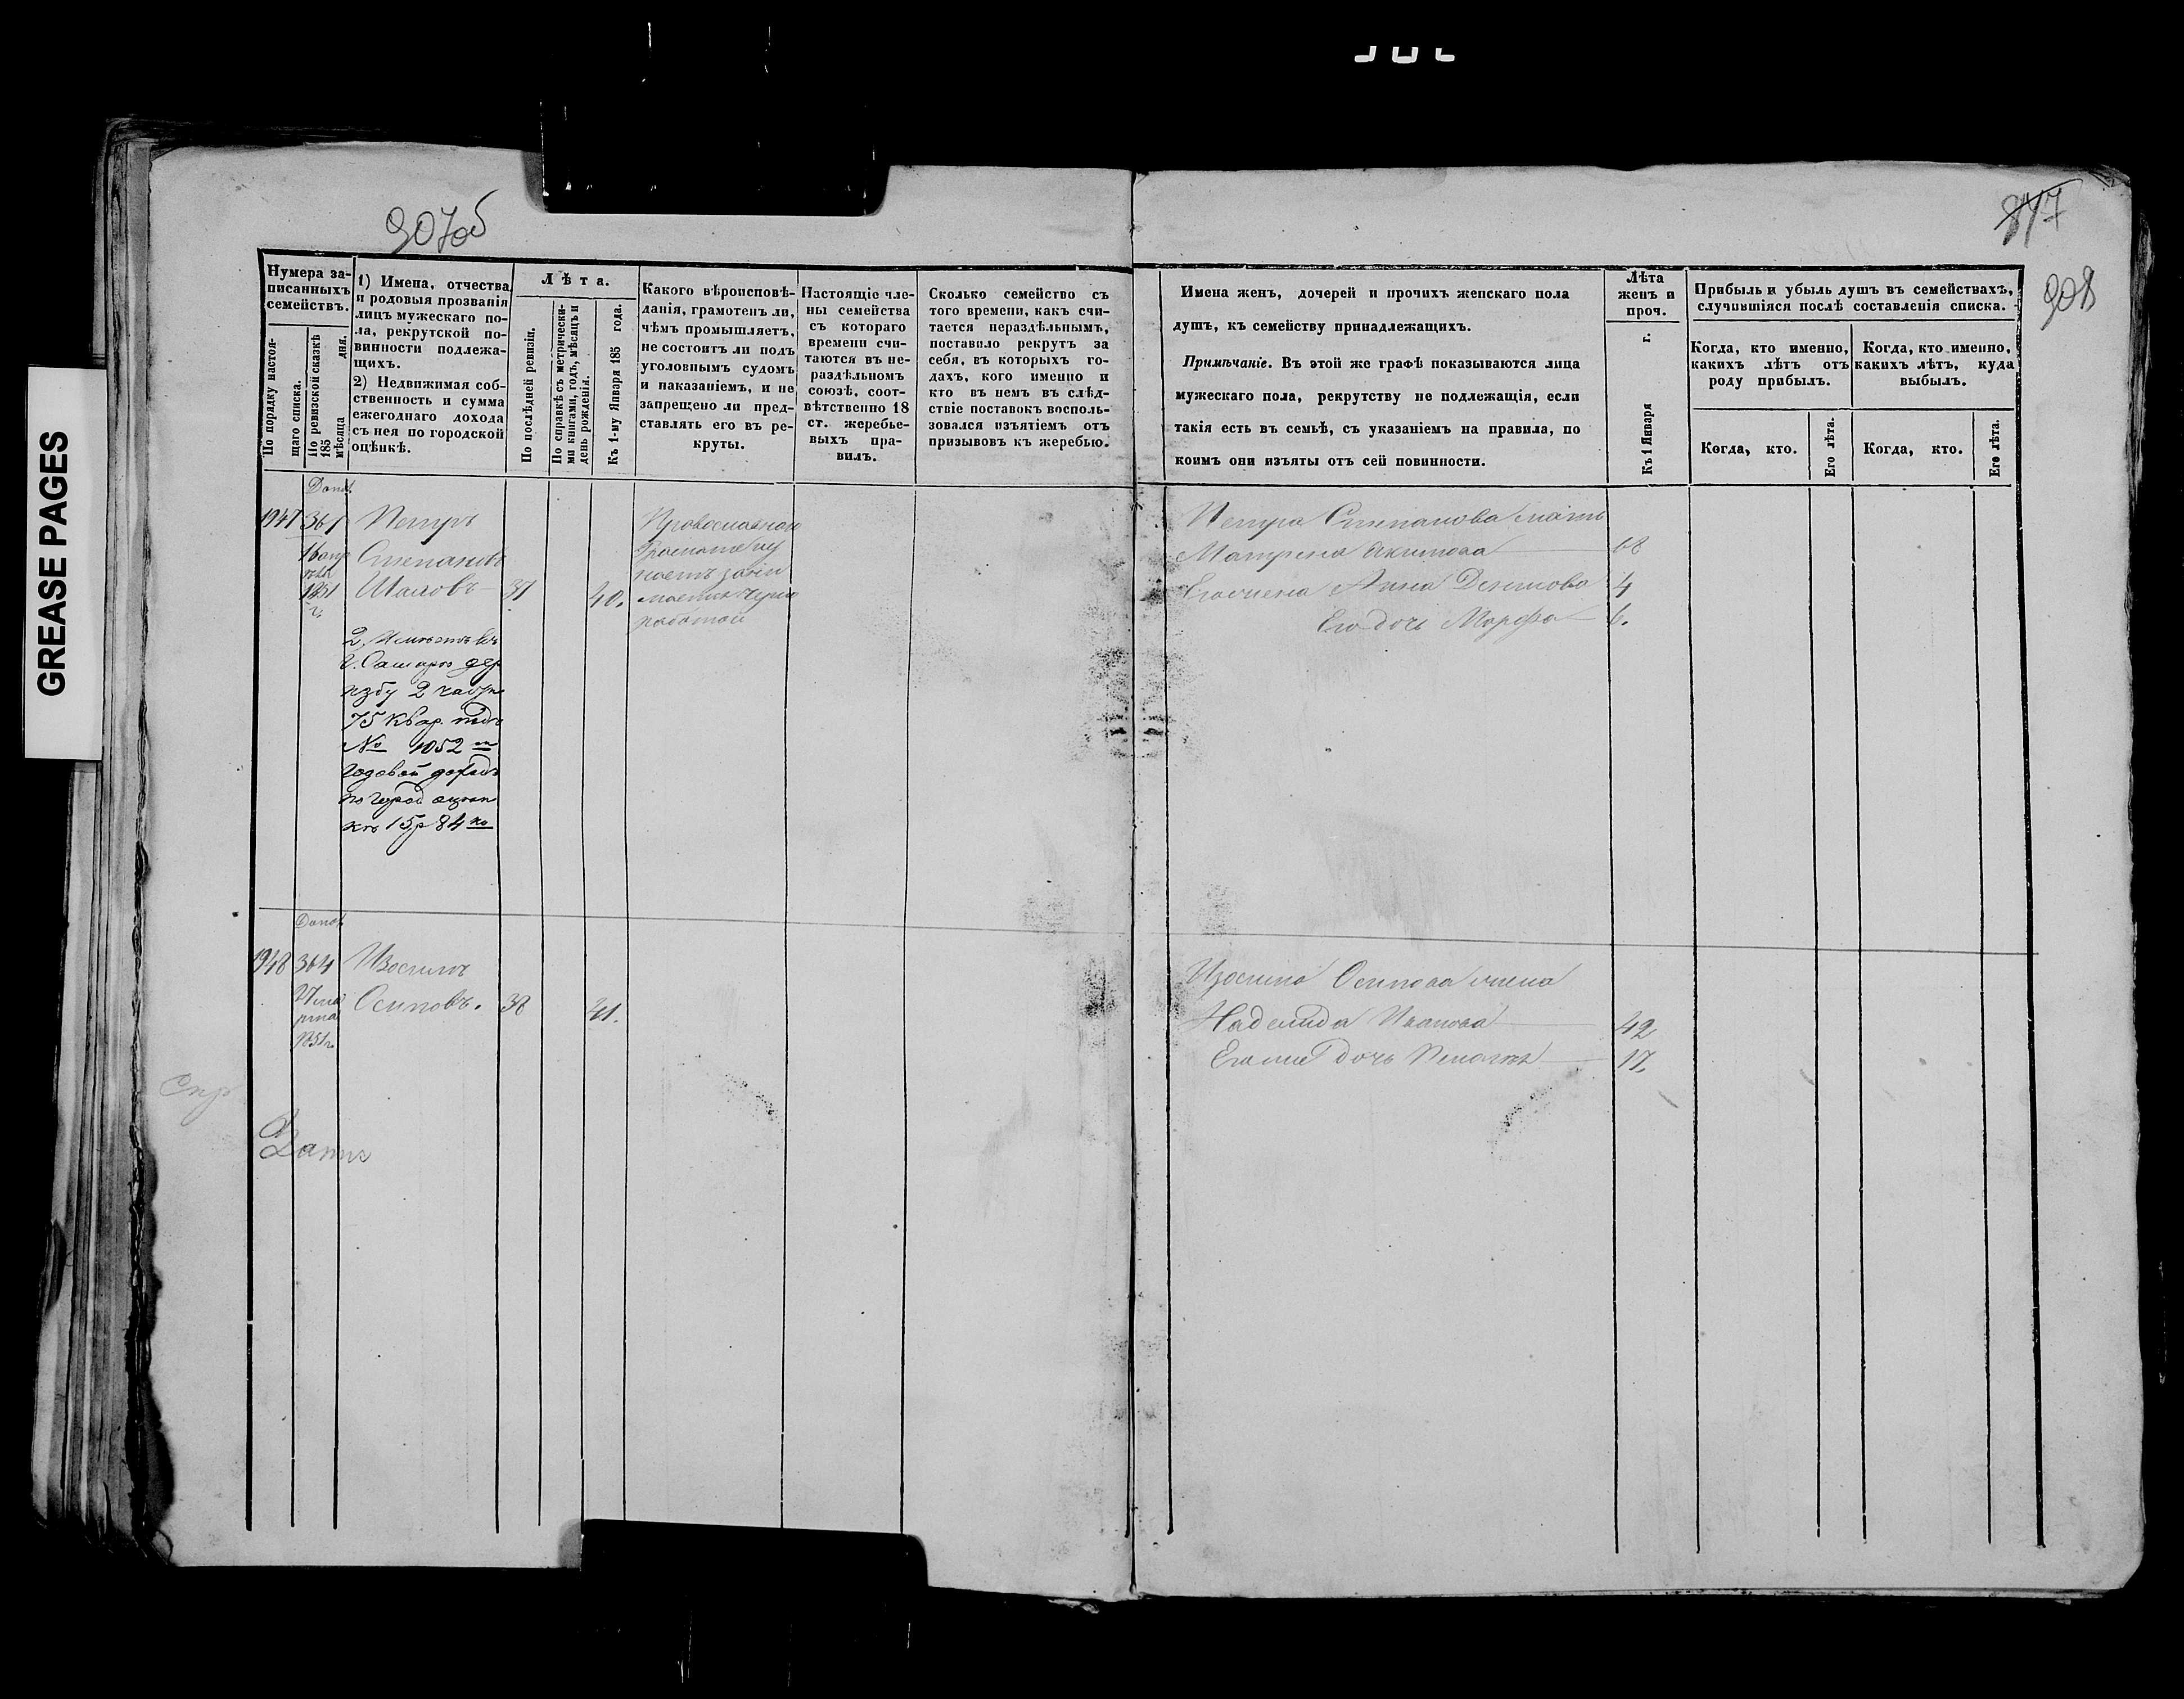 GREASE PAGES
907об
847
908
Нумера за-
писанныхъ
семействъ.
По порядку настоя-
щаго списка.
По ревизской сказкѣ
185
мѣсяца дня.
1) Имена, отчества
и родовыя прозванія
лицъ мужескаго по-
ла, рекрутской по-
винности подлежа-
щихъ.
2) Недвижимая соб-
ственность и сумма
ежегоднаго дохода
съ нея по городской
оцѣнкѣ.
Лѣта.
По послѣдней ревизіи.
По справкѣ съ метрически-
ми книгами, годъ, мѣсяцъ и
день рожденія.
Къ 1-му Января 185 года.
Какого вѣроисповѣ-
данія, грамотенъ ли,
чѣмъ промышляетъ,
не состоитъ ли подъ
уголовнымъ судомъ
и наказаніемъ, и не
запрещено ли пред-
ставлять его въ ре-
круты.
Настоящіе чле-
ны семейства
съ котораго
времени счи-
таются въ не-
раздѣльномъ
союзѣ, соот-
вѣтственно 18
ст. жеребье-
выхъ пра-
вилъ.
Сколько семейство съ
того времени, какъ счи-
тается нераздѣльнымъ,
поставило рекрутъ за
себя, въ которыхъ го-
дахъ, кого именно и
кто въ немъ въ слѣд-
ствіе поставокъ восполь-
зовался изъятіемъ отъ
призывовъ къ жеребью.
Имена женъ, дочерей и прочихъ женскаго пола
душъ, къ семейству принадлежащихъ.
Примѣчаніе. Въ этой же графѣ показываются лица
мужескаго пола, рекрутству не подлежащія, если
такія есть въ семьѣ, съ указаніемъ на правила, по
коимъ они изъяты отъ сей повинности.
Лѣта
женъ и
проч.
Къ 1 Января г.
Прибыль и убыль душъ въ семействахъ,
случившіяся послѣ составленія списка.
Когда, кто именно,
какихъ лѣтъ отъ
роду прибылъ.
Когда, кто именно,
какихъ лѣтъ, куда
выбылъ.
Когда, кто.
Его лѣта.
Когда, кто.
Его лѣта.
1947 361 Петръ
16 апр
Степановъ
1851
г.
Шаловъ 37 40.
Православнаго
работой
2, Имѣетъ въ
г. Самарѣ дер
избу 2 части
75 квар. подъ
№ 1052 м
годовой доходъ
по город оцѣн
кѣ 15р 84 ко
Петра Степанова мать
Матрена Акимова 68
Его жена Анна Денисова 4
Его дочь Марфа 6.
1948 364
Осиповъ. 38 41.
1851 г.
Осипова жена
Надежда Иванова 42
Его же дочь Пелагея 17
Спр